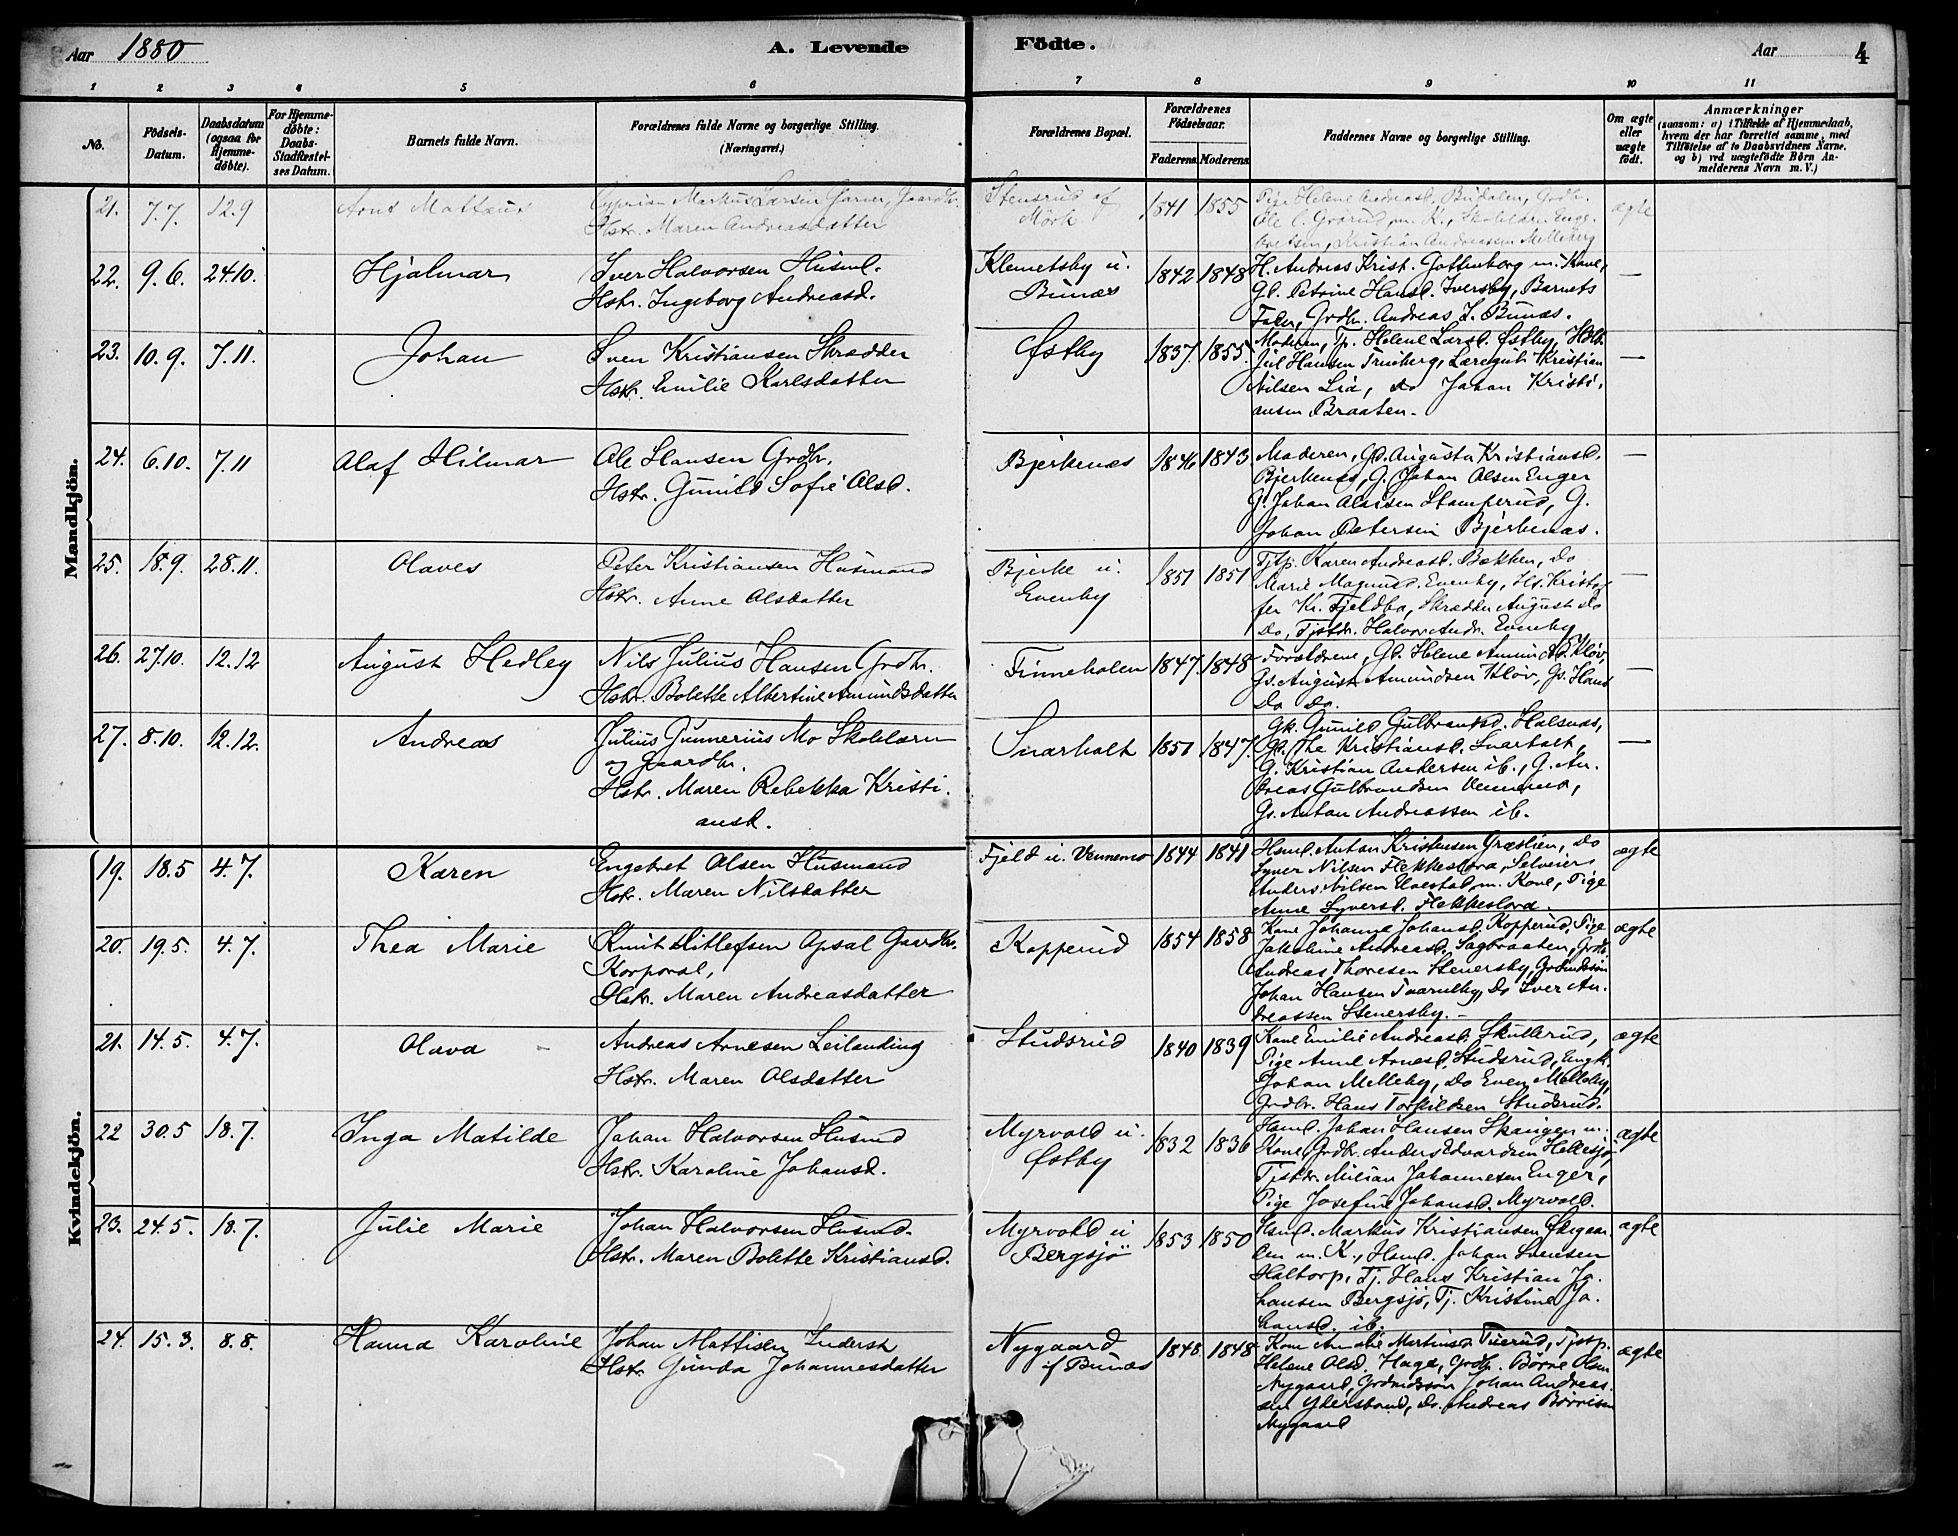 Aar 1880
A. Levende
Födte.
Aar
4
1 2 3 4 5 6 7 8 9 10 11
No.
Födsels-
Datum.
Daabsdatum
(ogsaa for
Hjemme-
döbte).
For Hjemme-
döbte:
Daabs-
Stadfæstel-
ses Datum.
Barnets fulde Navn.
Forældrenes fulde Navne og borgerlige Stilling.
(Næringsvei.)
Forældrenes Bopæl.
Forældrenes
Födselsaar.
Faderens.
Moderens.
Faddernes Navne og borgerlige Stilling.
Om ægte
eller
uægte
födt.
Anmærkninger
(saasom: a) i Tilfælde af Hjemmedaab,
hvem der har forrettet samme, med
Tilföielse af to Daabsvidners Navne,
og b) ved uægtefödte Börn An-
melderens Navn m. V.)
Mandkjön.
21. 7.7. 12.9 Arnt Matteus
Cyprian Markus Larsen Garver, Gaardbr.
Hstr. Maren Andreasdatter
Stensrud af
Mörk
1841 1855
Pige Helene Andreasd. Budalen, Grdbr.
Ole C. Graarud m. K., Skolelær. Enge-
bretsen, Kristian Andreassen Melleberg
ægte
22. 9.6. 24.10. Hjalmar
Iver Halvorsen Husmd.
Hstr. Ingeborg Andreasd.
Klemetsby u.
Bunæs
1842 1848
H. Andreas Krist. Gottenborg m. Kone,
Gl. Petrine Hansd. Iversby, Barnets
Fader, Grdbr. Andreas I. Bunæs.
—
23. 10.9. 7.11. Johan
Sven Kristiansen Skrædder
Hstr. Emilie Karlsdatter
Østby
1837 1855.
Moderen, Tp. Helene Larsd. Østby, Hdlb.
Jul Hansen Trinborg, Læregut Kristian
Nilsen Lia, do Johan Kristi-
ansen Braaten.
—
24. 6.10. 7.11 Olaf Hilmar
Ole Hansen Grdbr.
Hstr. Gunild Sofie Olsd.
Bjerkenæs
1846 1843.
Moderen, Gd. Augusta Kristiansd.
Bjerkenæs, G. Johan Olsen Enger
G. Johan Olaisen Stamperud, G.
Johan Petersen Bjerkenæs.
—
25. 18.9. 28.11. Olaves
Peter Kristiansen Husmand
Hstr. Anne Olsdatter
Bjerke u.
Evenby
1851 1851
Tjtp. Karen Andreasd. Bækken, do
Marie Magnusd. Evenby, Hs. Kristof-
fer Kr. Fjeldbo, Skrædder August do
do, Tjstdr. Halvor Andr. Evenby
—
26. 27.10. 12.12 August Hedley
Nils Julius Hansen Grdbr.
Hstr. Bolette Albertine Amundsdatter
Finneholen
1847. 1848
Forældrene, Gl. Helene Amundsd. Kløv,
Gs. August Amundsen Kløv, Gs. Hans
do do.
—
27. 8.10. 12.12. Andreas
Julius Gunnerius Mo Skolelærer
og Gaardbr.
Hstr. Maren Rebekka Kristi-
ansd.
Snarholt
1851 1847.
Gk. Gunild Gulbransd. Halsnæs,
Gl. The Kristiansd. Snarholt,
G. Kristian Andersen ib., G. An-
dreas Gulbrandsen Vennemo,
Gs. Anton Andreassen ib.
—
Kvindekjön.
19. 18.5 4.7. Karen
Engebret Olsen Husmand
Hstr. Maren Nilsdatter
Fjeld u. Vennemo
1844 1841
Hsmd. Anton Kristensen Græslien, do
Syver Nilsen Flekkeslora, Selveier
Anders Nilsen Ulvestad m. Kone, Pige
Anne Syversd. Flekkeslora.
ægte
20. 19.5. 4.7. Thea Marie
Knut Ditlefsen Opsal Gaardbr.
Korporal,
Hstr. Maren Andreasdatter
Kopperud
1854 1858
Kone Johanna Johansd. Kopperud, Pige
Jakobine Andreasd. Sagbraaten, Grdb.
Andreas Thoresen Stenersby, Grdmdssön
Johan Hansen Tvarnelby, do Iver An-
dreassen Stenersby.-
ægte
21. 14.5. 4.7. Olava
Andreas Arnesen Leilending
Hstr. Maren Olsdatter
Studsrud
1840 1839
Kone Emilie Andreasd. Skullerud,
Pige Anne Arnesd. Studsrud, Ungk.
Johan Melleby, do Even Melleby,
Grdbr. Hans Torkildsen Studsrud.
ægte
22 30.5 18.7. Inga Matilde
Johan Halvorsen Husmd
Hstr. Karoline Johansd.
Myrvold u.
Østby
1832 1836
Hsmd. Johan Hansen Skaugen m.
Kone Grdbr. Anders Edvardsen Hellesjö,
Tjstdr. Milian Johannesen Enger,
Pige Josefine Johansd. Myrvold.
ægte
23. 24.5. 18.7. Julie Marie
Johan Halvorsen Husmd.
Hstr. Maren Bolette Kristiansd.
Myrvold u
Bergsjö
1853 1850
Hsmd. Markus Kristiansen Ökgaar-
den m. K., Hsmd. Johan Svensen
Haltorp, Tj. Hans Kristian Jo-
hansen Bergsjö, Tj. Kristine Jo-
hansd. ib.
ægte
24. 15.3. 8.8. Hanna Karoline
Johan Mattisen Inderst
Hstr. Gunda Johannesdatter
Nygaard
af Bunæs
1848 1848
Kone Amalie Martinsd Tuerud, Tjstp.
Helene Olsd. Haga, Grdb. Börne Olsen
Nygaard, Grdmdssön Johan Andreas-
sen Ydersbond, do. Andreas Börnesen
Nygaard
ægte